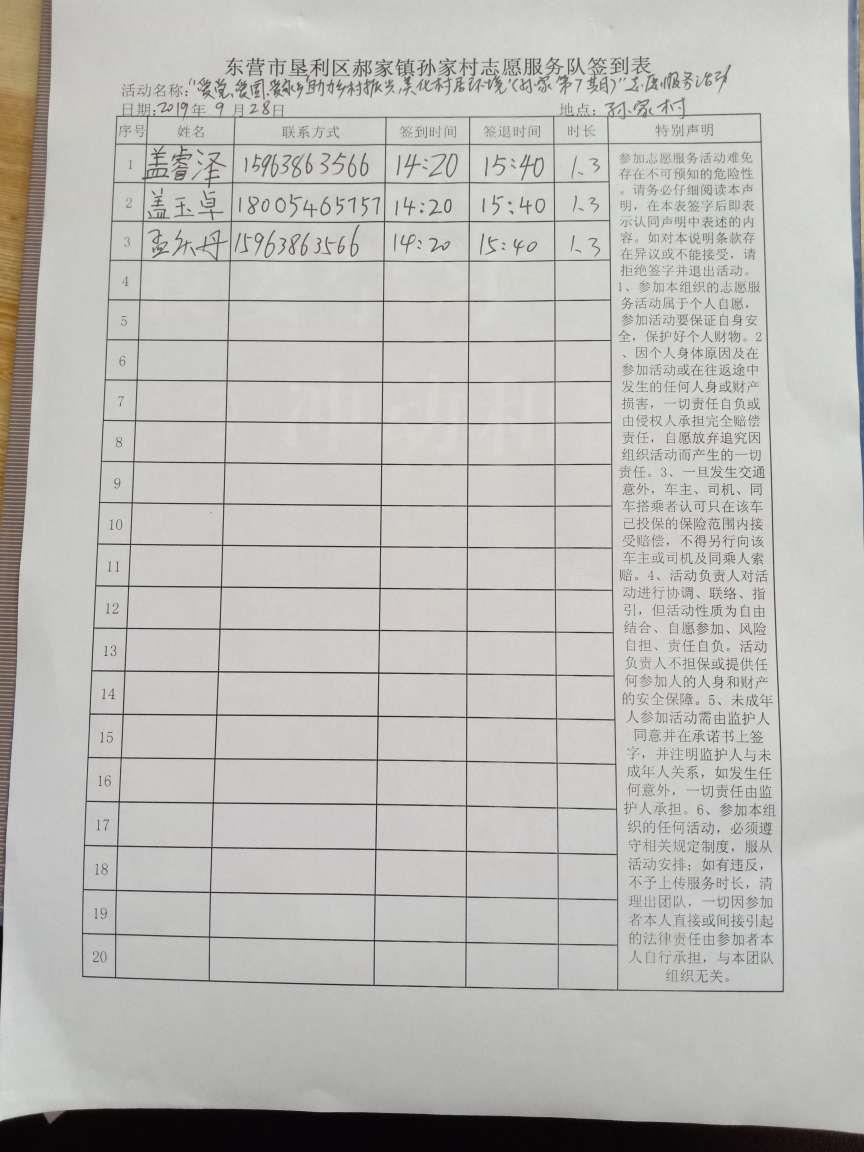 东营市垦利区郝家镇孙家村志愿服务队签到表
活动名称:“爱党、爱国、爱家乡”助力乡村振兴,美化村居环境“(孙家第7期)”志愿服务活动
日期:2019年 9 月 28日 地点:孙家村
序号 姓名 联系方式 签到时间 签退时间 时长 特别声明
1 盖睿泽 15963863566 14:20 15:40 1.3
2 盖玉卓 18005465757 14:20 15:40 1.3
3 丹 15963863566 14:20 15:40 1.3
4
5
6
7
8
9
10
11
12
13
14
15
16
17
18
19
20
参加志愿服务活动难免
存在不可预知的危险性
。请务必仔细阅读本声
明,在本表签字后即表
示认同声明中表述的内
容。如对本说明条款存
在异议或不能接受,请
拒绝签字并退出活动。
1、参加本组织的志愿服
务活动属于个人自愿,
参加活动要保证自身安
全,保护好个人财物。2
、因个人身体原因及在
参加活动或在往返途中
发生的任何人身或财产
损害,一切责任自负或
由侵权人承担完全赔偿
责任,自愿放弃追究因
组织活动而产生的一切
责任。3、一旦发生交通
意外,车主、司机、同
车搭乘者认可只在该车
已投保的保险范围内接
受赔偿,不得另行向该
车主或司机及同乘人索
赔。4、活动负责人对活
动进行协调、联络、指
引,但活动性质为自由
结合、自愿参加、风险
自担、责任自负。活动
负责人不担保或提供任
何参加人的人身和财产
的安全保障。5、未成年
人参加活动需由监护人
同意并在承诺书上签
字,并注明监护人与未
成年人关系,如发生任
何意外,一切责任由监
护人承担。6、参加本组
织的任何活动,必须遵
守相关规定制度,服从
活动安排;如有违反,
不予上传服务时长,清
理出团队,一切因参加
者本人直接或间接引起
的法律责任由参加者本
人自行承担,与本团队
组织无关。